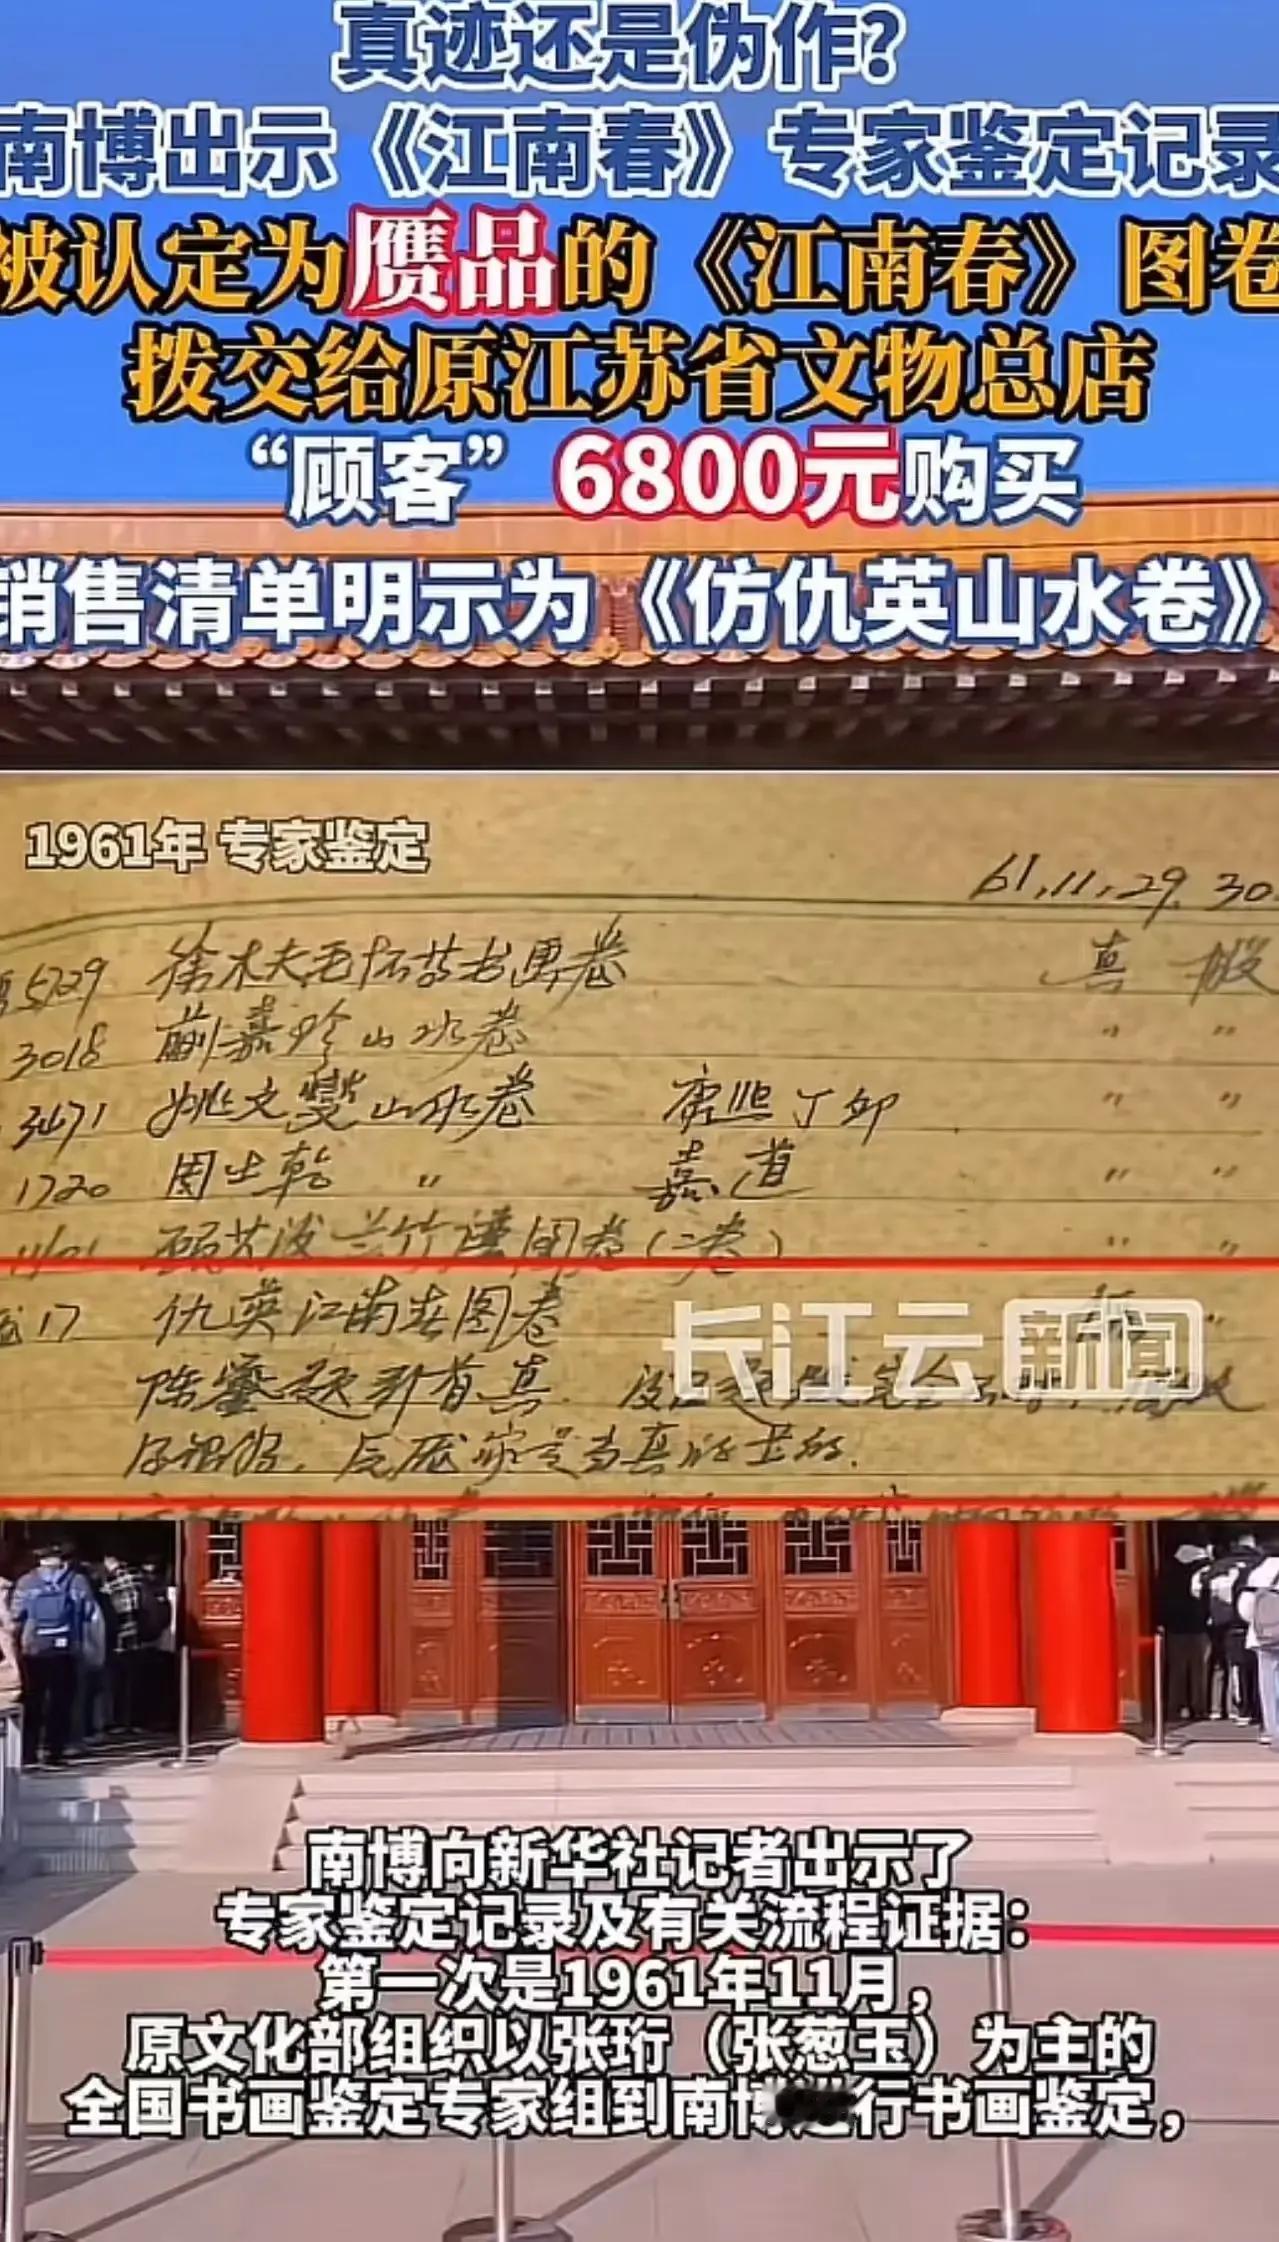 真迹还是伪作？
南博出示《江南春》专家鉴定记录
被认定为赝品的《江南春》图卷
拨交给原江苏省文物总店
“顾客”6800元购买
销售清单明示为《仿仇英山水卷》
1961年 专家鉴定
61.11.29.30.
5729 书画卷 真
3018 山水卷 〃 〃
3471 姚文燮山水卷 康熙丁卯 〃 〃
1720 周士乾 〃 嘉道 〃 〃
兰竹 图卷（二卷） 〃 〃
17 仇英江南春图卷 〃
陈鎏题引首真.
长江云新闻
南博向新华社记者出示了
专家鉴定记录及有关流程证据：
第一次是1961年11月，
原文化部组织以张珩（张葱玉）为主的
全国书画鉴定专家组到南博 行书画鉴定，